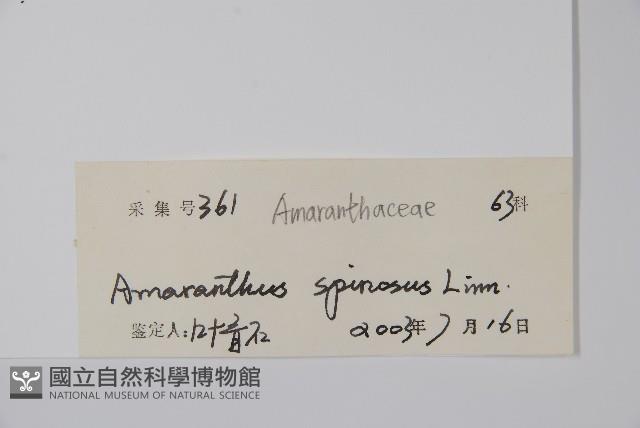 采集号361 Amaranthaceae 63科
Amaranthus spinosus Linn.
鉴定人: 2003年7月16日
國立自然科學博物館
NATIONAL MUSEUM OF NATURAL SCIENCE